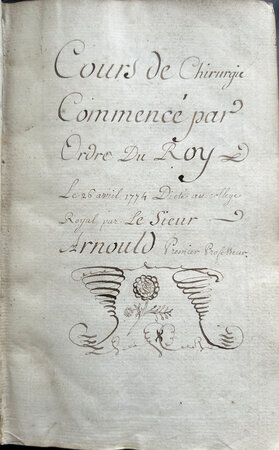 Cours de Chirurgie
Commencé par
Ordre Du Roy
Le 26 avril 1774 Dicté au College
Royal par Le Sieur
Arnould Premier Professeur.